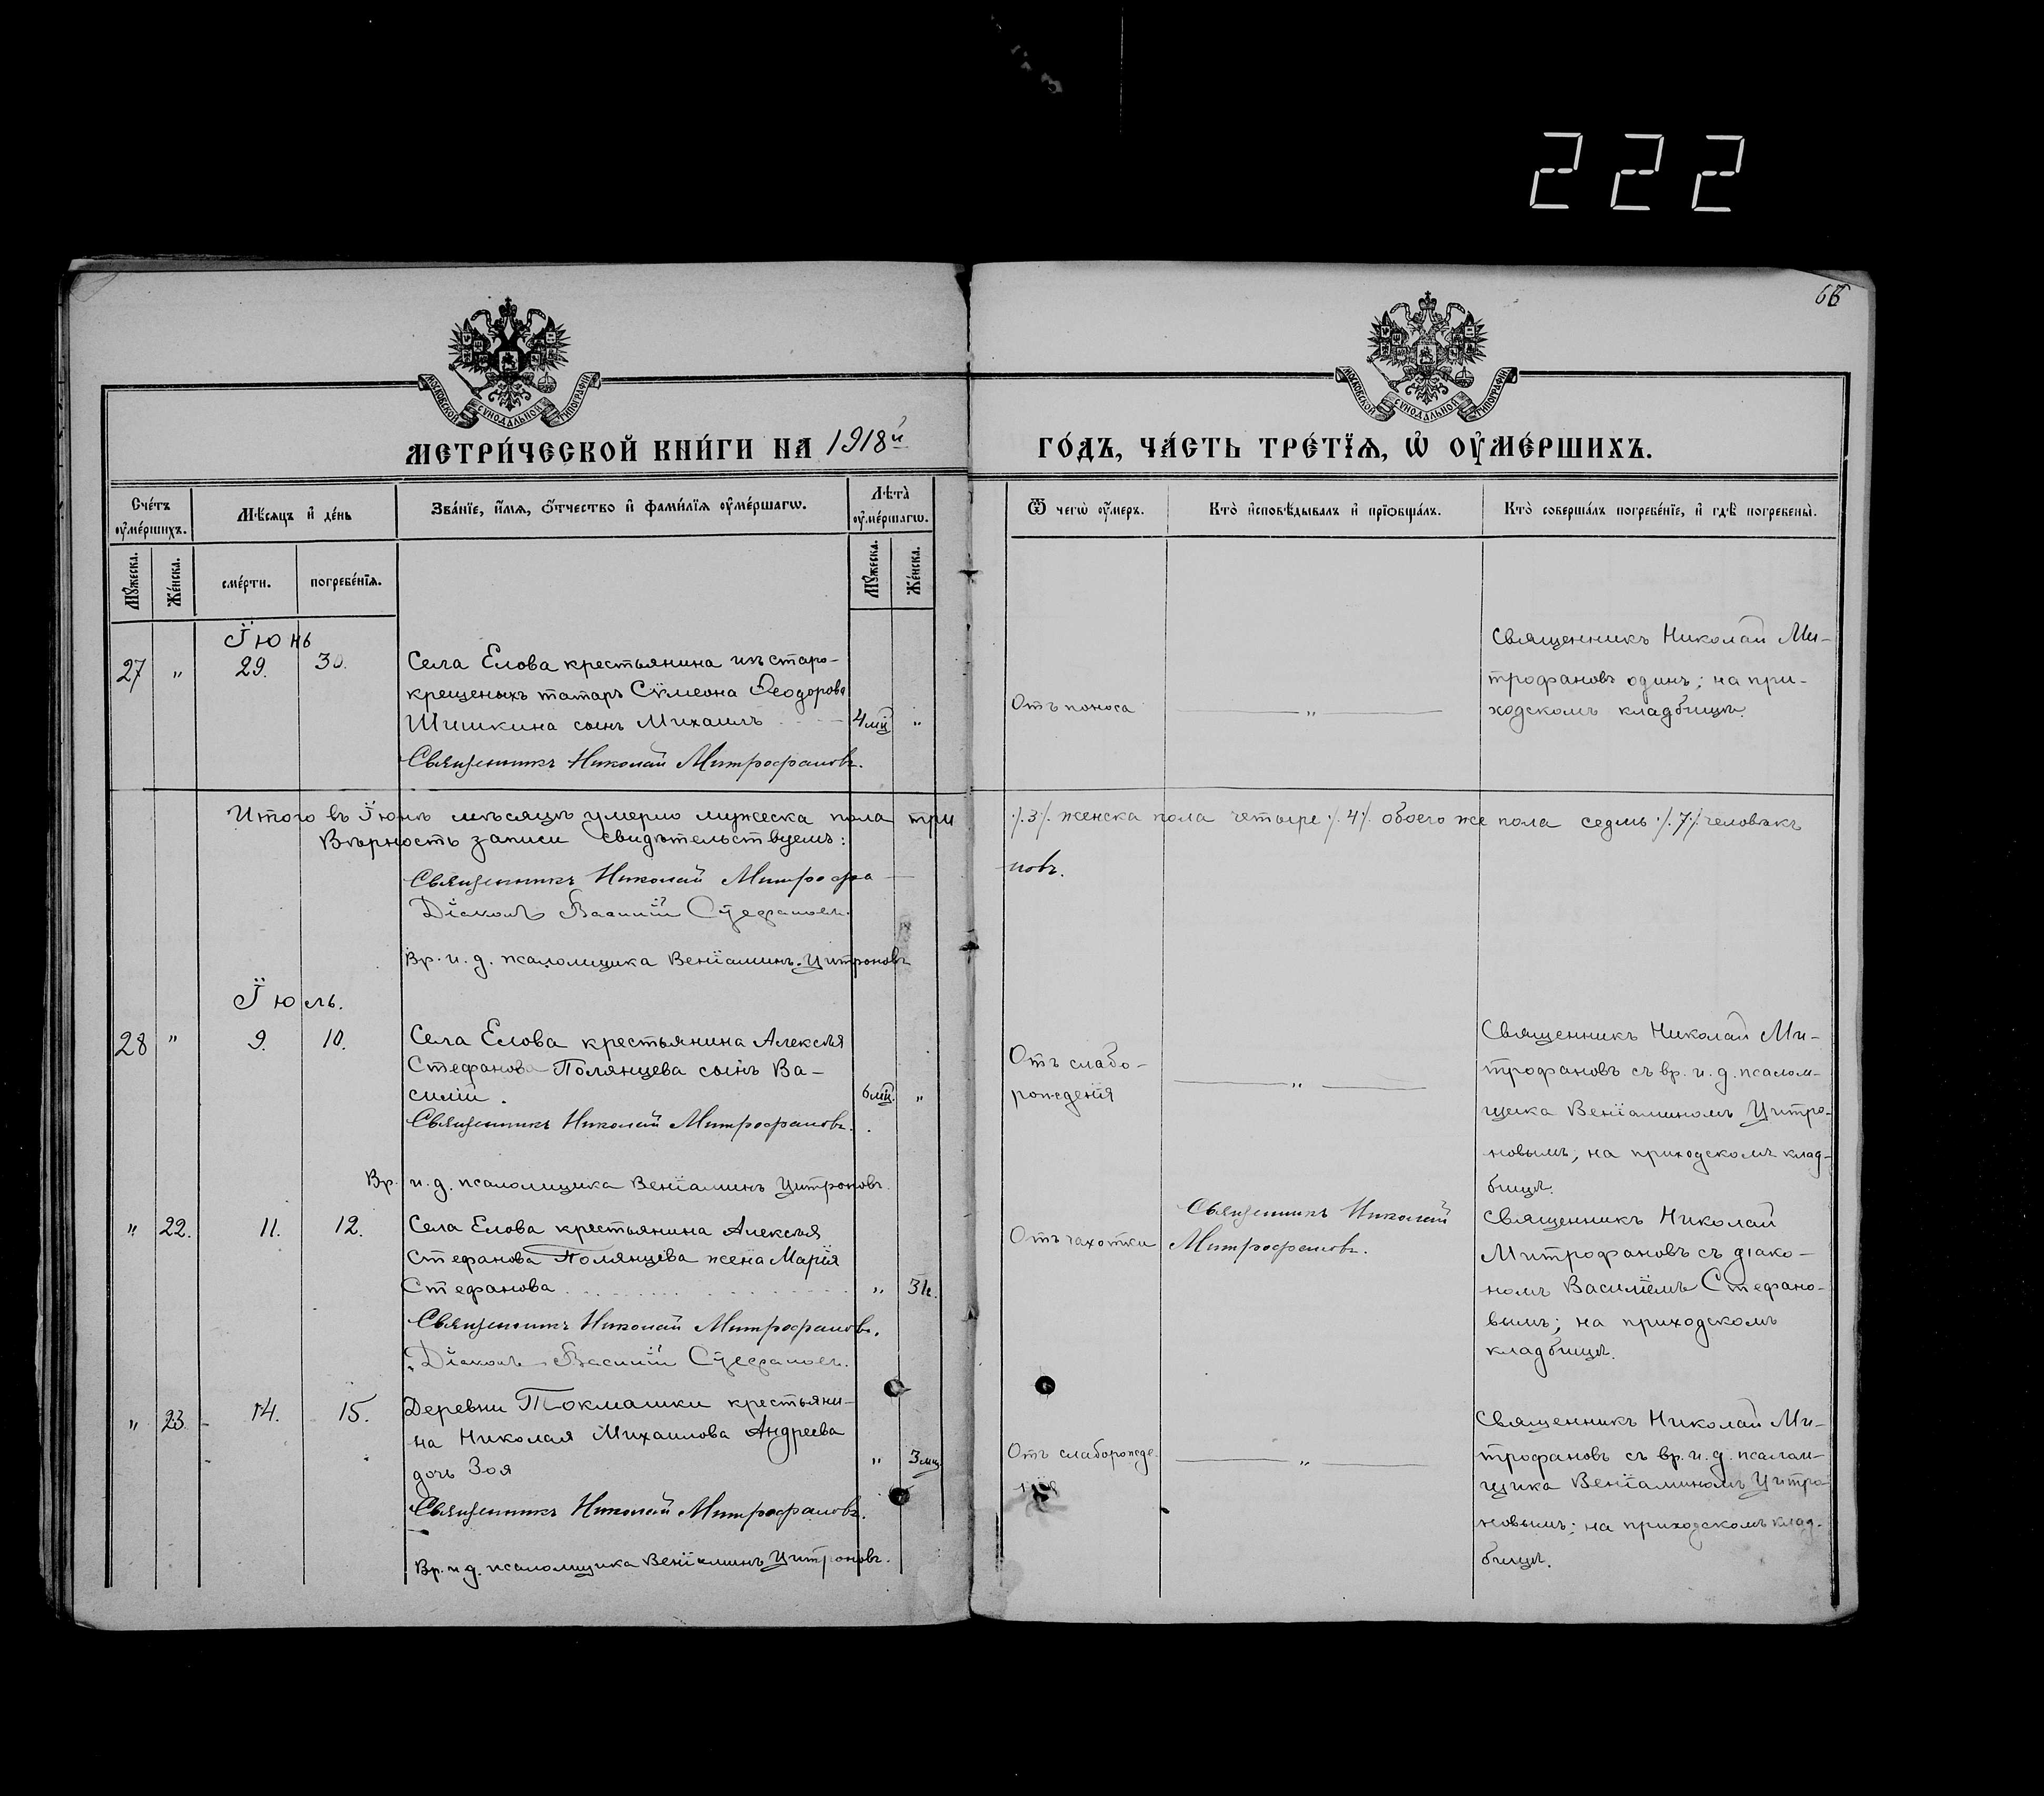 222
66
МОСКОВСКОЙ СУНОДАЛЬНОЙ ТИПОГРАФІИ
МОСКОВСКОЙ СУНОДАЛЬНОЙ ТИПОГРАФІИ
МЕТРИ́ЧЕСКОЙ КНИ́ГИ НА 1918й
ГО́ДЪ, ЧА́СТЬ ТРЕ́ТЇѦ, Ѽ ОУ҆МЕ́РШИХЪ.
Сче́тъ оу҆ме́ршихъ.
Мѣ́сяцъ и҆ де́нь
Зва́нїе, и҆́мѧ, ѻ҆́тчество и҆ фами́лїѧ оу҆ме́ршагѡ.
Лѣта̀ оу҆ме́ршагѡ.
Ѿ чегѡ̀ оу҆́меръ.
Кто̀ и҆сповѣ́дывалъ и҆ прїѻбща́лъ.
Кто̀ соверша́лъ погребе́нїе, и҆ гдѣ̀ погребены̀.
Мꙋ́жеска.
Же́нска.
сме́рти.
погребе́нїѧ.
Мꙋ́жеска.
Же́нска.
Їюнь
27 " 29. 30. Села Елова крестьянина изъ старо-
крещеныхъ татаръ Сѵмеона Ѳеодорова
Шишкина сынъ Михаилъ 4 мц "
Священникъ Николай Митрофановъ.
Отъ поноса
"
Священникъ Николай Ми-
трофановъ один; на при-
ходскомъ кладбищѣ.
Итого въ Їюнѣ мѣсяцѣ умерло мужеска пола три ./.3/. женска пола четыре ./.4/. обоего же пола седмь ./.7/. человѣкъ
Вѣрность записи свидѣтельствуемъ:
Священникъ Николай Митрофа-
новъ.
Дїаконъ Василїй Стефановъ.
Вр. и. д. псаломщика Венїаминъ Цитроновъ
Їюль.
28 " 9. 10. Села Елова крестьянина Алексѣя
Стефанова Полянцева сынъ Ва-
силїй. 6 мц. "
Священникъ Николай Митрофановъ.
Вр. и. д. псаломщика Венїаминъ Цитроновъ.
Отъ слабо-
рожденїя
"
Священникъ Николай Ми-
трофановъ съ вр. и. д. псалом-
щика Венїаминомъ Цитро-
новымъ, на приходскомъ клад-
бищѣ.
" 22. 11. 12. Села Елова крестьянина Алексѣя
Стефанова Полянцева жена Марїя
Стефанова " 31 г.
Священникъ Николай Митрофановъ.
Дїаконъ Василїй Стефановъ.
Отъ чахотки
Священникъ Николай
Митрофановъ.
Священникъ Николай
Митрофановъ съ дїако-
номъ Василїемъ Стефано-
вымъ; на приходскомъ
кладбищѣ.
" 23. 14. 15. Деревни Токмашки крестьяни-
на Николая Михаилова Андреева
дочь Зоя " 3 мц
Священникъ Николай Митрофановъ.
Вр. и д. псаломщика Венїаминъ Цитроновъ.
Отъ слаборожде-
"
Священникъ Николай Ми-
трофановъ съ вр. и. д. псалом-
щика Венїаминомъ Цитро-
новымъ; на приходскомъ клад-
бищѣ.